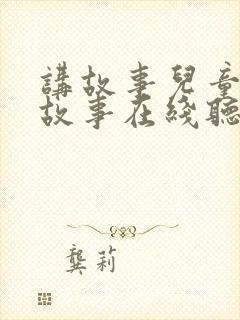 講故事兒童
故事在綫聽
龔莉